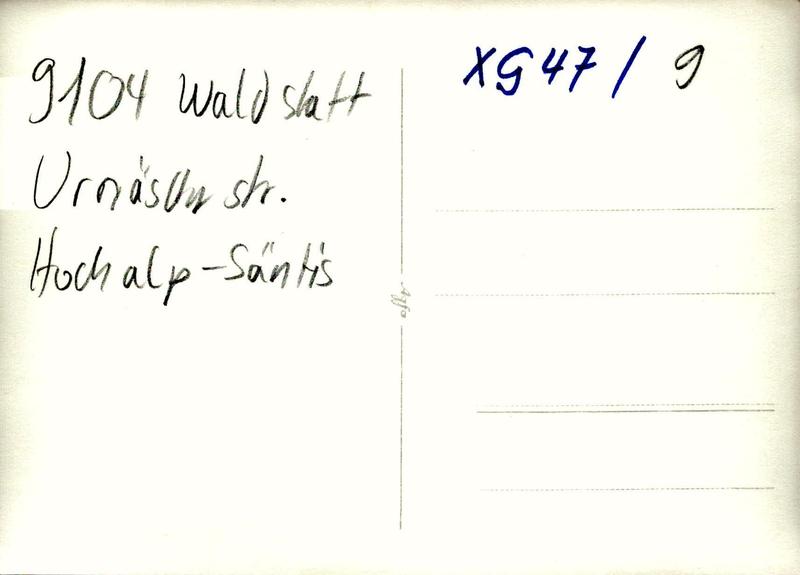 9104 Waldstatt
Urnäschstr.
Hochalp-Säntis
XG47/9
Agfa